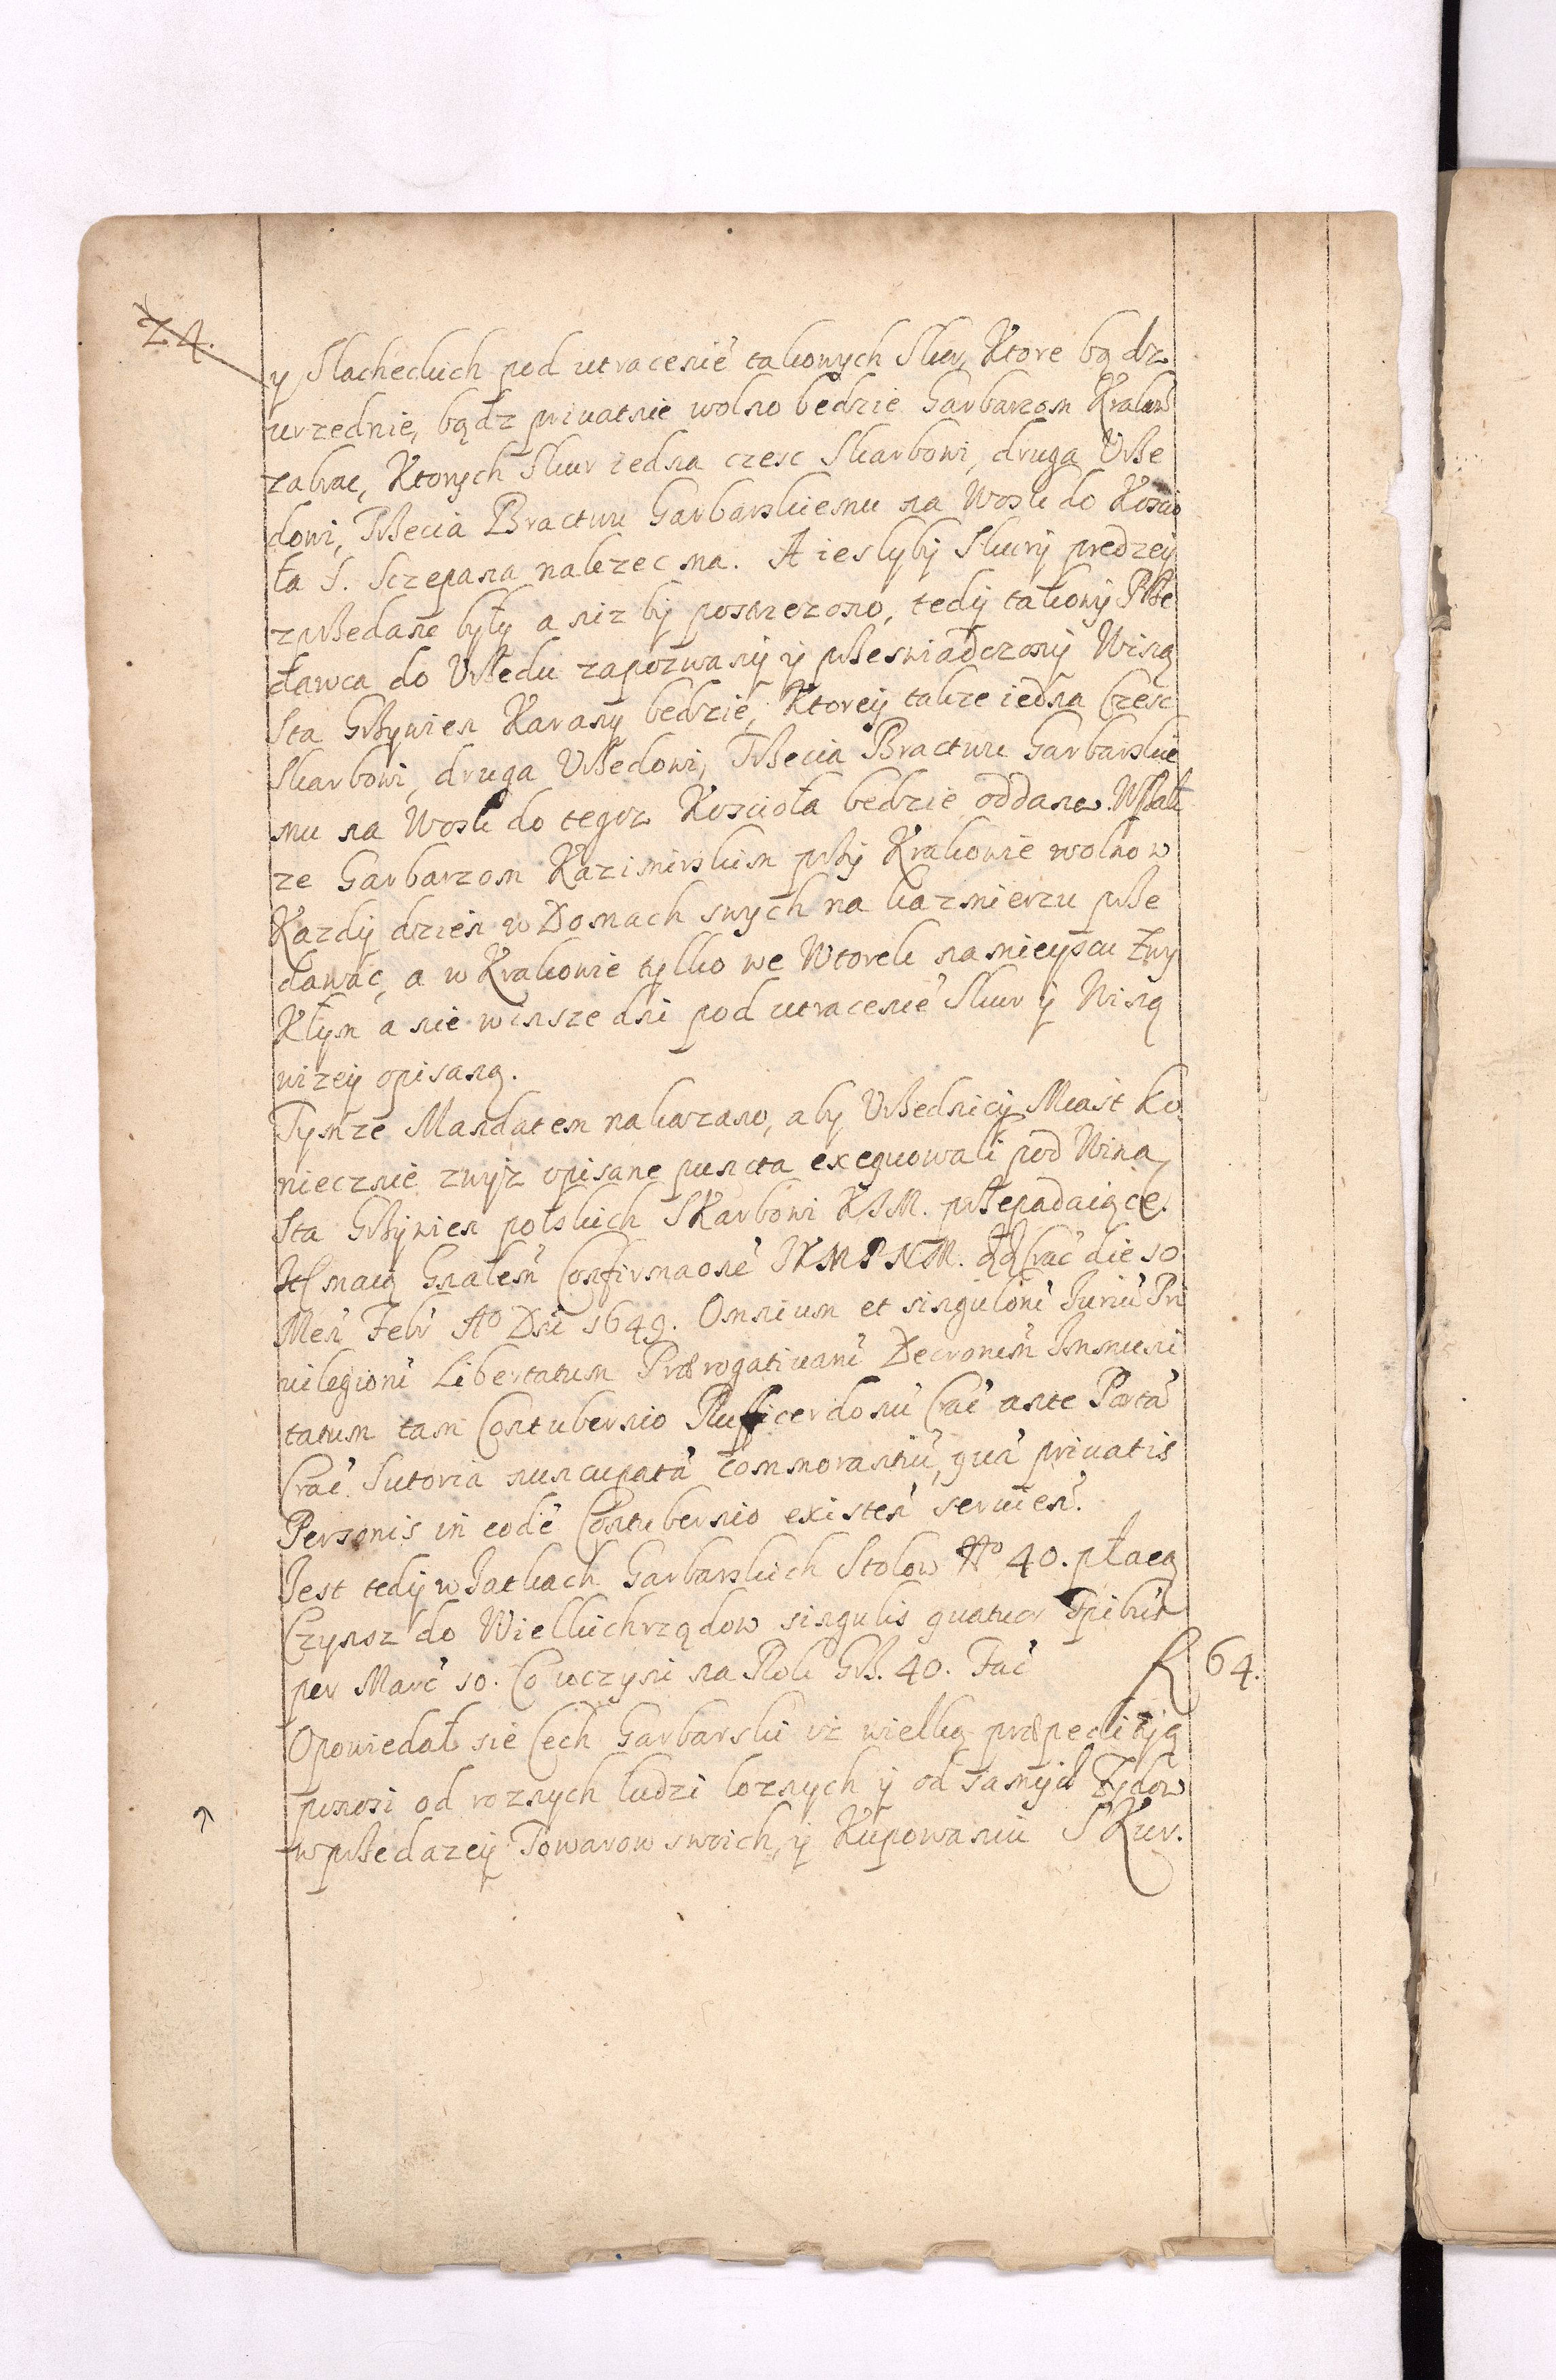 24.
y Slacheckich pod utracenie takowych Skur, Ktore bądz
urzednie, bądz privatnie wolno bedzie Garbarzom Krakow
zabrac, Ktorych Skur iedna czesc Skarbowi, druga Vrze
dowi, Trzecia Bractwu Garbarskiemu na Wosk do Koscio
ła S. Sczepana nalezec ma. A iesliby Skury predzey
zprzedane były a nizby postrzezono, tedy takowy Prze
dawca do Vrzedu zapozwany y przeswiadczony Winą
Sta Grzywien Karany bedzie, Ktorey takze iedna Czesc
Skarbowi, druga Vrzedowi, Trzecia Bractwu Garbarskie
mu na Wosk do tegoz Koscioła bedzie oddana. Wszak
ze Garbarzom Kazimirskim przy Krakowie wolno w
Kazdy dzien w Domach swych na kazmierzu prze
dawac, a w Krakowie tylko we Wtorek na mieyscu Zwy
Kłym a nie winsze dni pod utracenie Skur y Winą
wizey opisaną.
Tymze Mandatem nakazano, aby Vrzednicy Miast ko
niecznie zwyz opisane puncta exequowali pod Wina
Sta Grzywien polskich SKarbowi KJM. przepadaiące.
It maią Gnalem Confirmaone JKMPNM. dd Crac die 10
Men Febr Ao Dni 1649. Omnium et singulorũ Juriũ Pri
uilegiorũ Libertatum Prærogatiuarũ Decretorum Immuni
tatum tam Contubernio Rufficerdonũ Crac ante Portã
Crac Sutoria nuncupatã commorantiũ, quã priuatis
Personis in eodẽ Contubernio existẽ seruien.
Jest tedy w Jatkach Garbarskich Stolow No 40. płacą
Czynsz do Wielkichrządow singulis quatuor Tpibus
per Marc 10. Co uczyni na Rok Grz. 40. Fac f 64.
Opowiedał sie Cech Garbarski iz wielką præpeditią
ponosi od roznych ludzi loznych y od samych Zydow
w przedazey Towarow swoich, y Kupowaniu SKur.